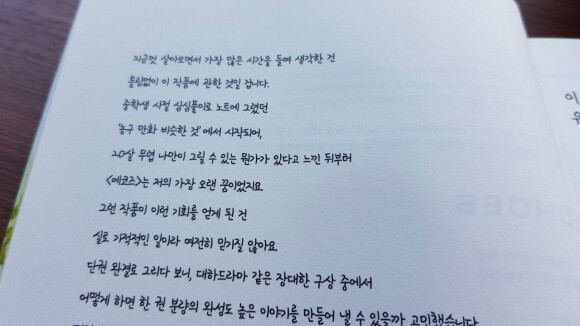 지금껏 살아오면서 가장 많은 시간을 들여 생각한 건
틀림없이 이 작품에 관한 것일 겁니다.
중학생 시절 심심풀이로 노트에 그렸던
'농구 만화 비슷한 것'에서 시작되어,
20살 무렵 나만이 그릴 수 있는 뭔가가 있다고 느낀 뒤부터
<에코즈>는 저의 가장 오랜 꿈이었지요.
그런 작품이 이런 기회를 얻게 된 건
실로 기적적인 일이라 여전히 믿기질 않아요.
단권 완결로 그리다 보니, 대하드라마 같은 장대한 구상 중에서
어떻게 하면 한 권 분량의 완성도 높은 이야기를 만들어 낼 수 있을까 고민했습니다
이